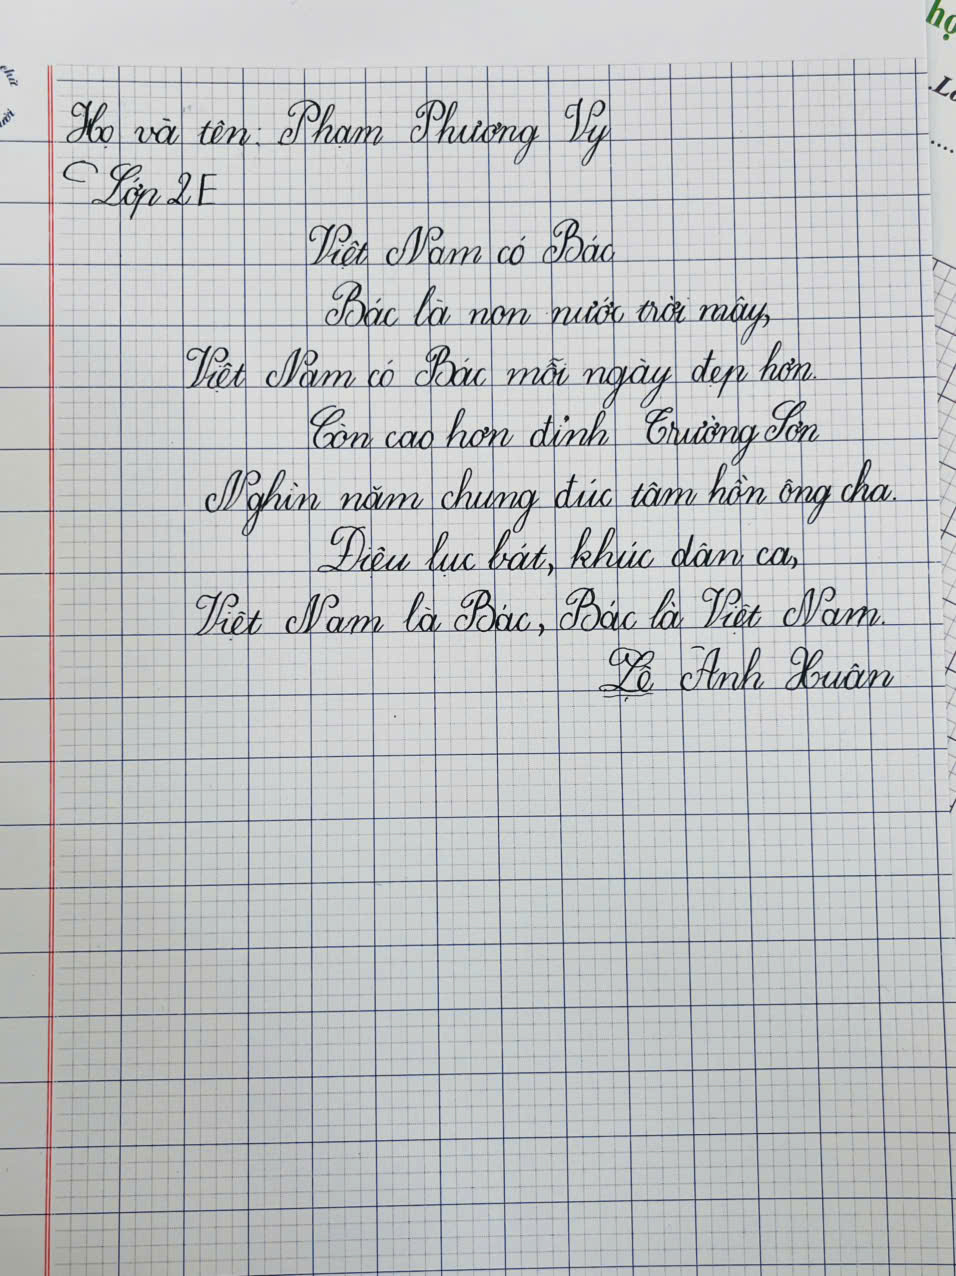 Họ và tên: Phạm Phương Vy
Lớp 2E
Việt Nam có Bác
Bác là non nước trời mây,
Việt Nam có Bác mỗi ngày đẹp hơn.
Còn cao hơn đỉnh Trường Sơn
Nghìn năm chung đúc tâm hồn ông cha.
Điệu lục bát, khúc dân ca,
Việt Nam là Bác, Bác là Việt Nam.
Lê Anh Xuân